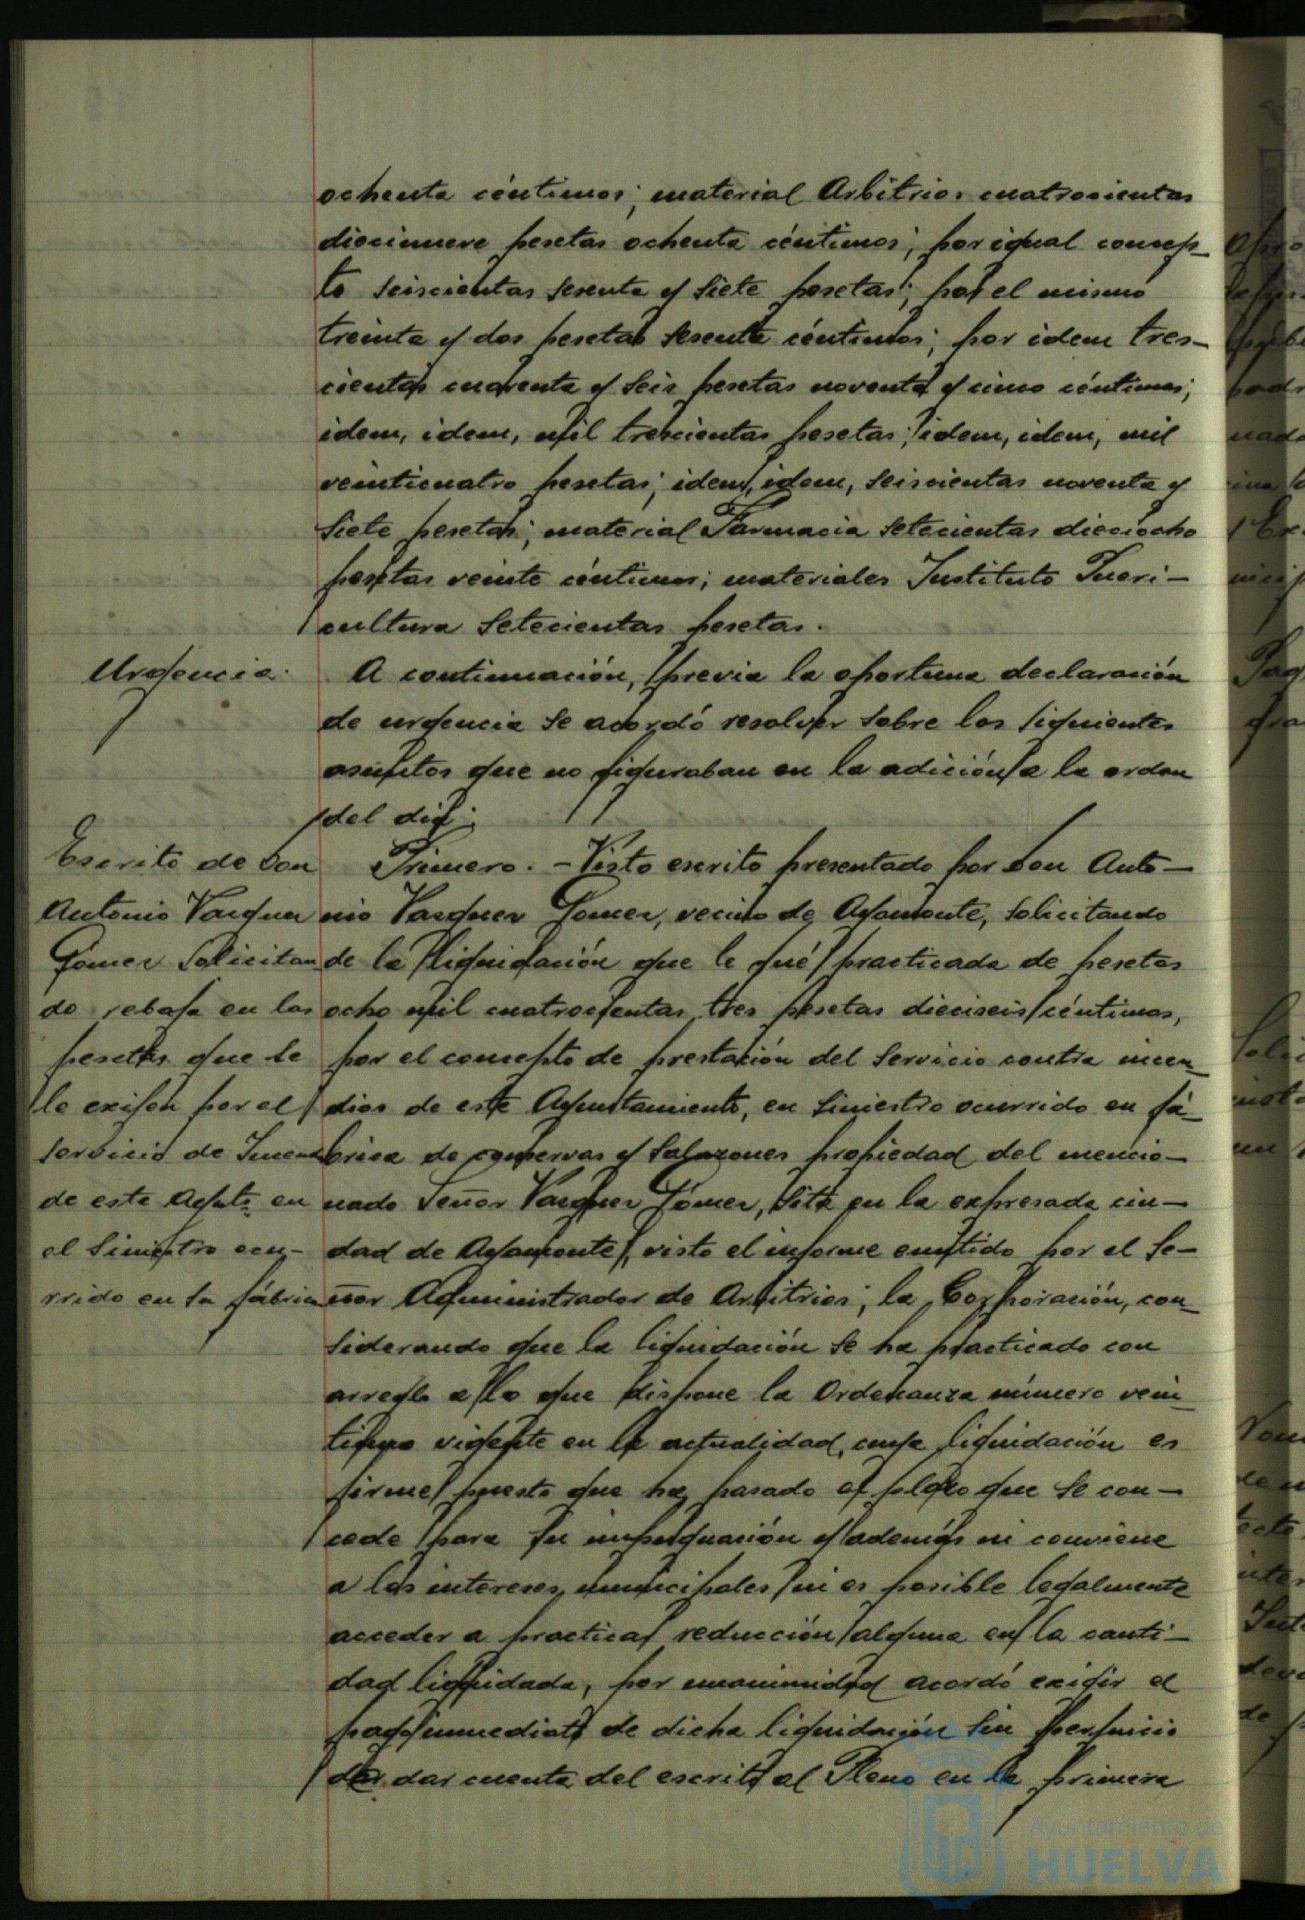 ochenta céntimos; material Arbitrios cuatrocientas
diecinueve pesetas ochenta céntimos; por igual concep-
to seiscientas sesenta y siete pesetas; por el mismo
treinta y dos pesetas sesenta céntimos; por idem tres-
cientas cuarenta y seis pesetas noventa y cinco céntimos;
idem, idem, mil trescientas pesetas; idem, idem, mil
veinticuatro pesetas; idem, idem, seiscientas noventa y
siete pesetas; material Farmacia setecientas dieciocho
pesetas veinte céntimos; materiales Instituto Pueri-
cultura setecientas pesetas.
Urgencia.
A continuación, previa la oportuna declaración
de urgencia se acordó resolver sobre los siguientes
asuntos que no figuraban en la adición a la orden
del día:
Escrito de Don
Antonio Vazquez
Gómez solicitan
do rebaja en las
pesetas que se
le exijen por el
servicio de Incend
de este Ayuto en
el Siniestro ocu-
rrido en su fábrica
Primero. - Visto escrito presentado por Don Anto-
nio Vazquez Gomez, vecino de Ayamonte, solicitando
de la liquidación que le fué practicada de pesetas
ocho mil cuatrocientas tres pesetas dieciseis céntimos,
por el concepto de prestación del servicio contra incen-
dios de este Ayuntamiento, en siniestro ocurrido en fá-
brica de conservas y salazones propiedad del mencio-
nado Señor Vazquez Gómez, sita en la expresada ciu-
dad de Ayamonte, visto el informe emitido por el Se-
ñor Administrador de Arbitrios; la Corporación, con-
siderando que la liquidación se ha practicado con
arreglo a lo que dispone la Ordenanza número vein-
vigente en la actualidad, cuya liquidación es
firme puesto que ha pasado el plazo que se con-
cede para su impugnación y además ni conviene
a los intereses municipales ni es posible legalmente
acceder a practicar reducción alguna en la canti-
dad liquidada, por unanimidad acordó exigir el
pago inmediato de dicha liquidación sin perjuicio
de dar cuenta del escrito al Pleno en la primera
Ayuntamiento de
HUELVA